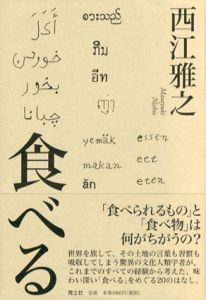 西江雅之
Masayuki Nishie
စားသည်
أَكَلَ
خوردن
بخور
چبانا
yemäk essen
makan eet
ăn eten
食べる
「食べられるもの」と
「食べ物」は
何がちがうの?
世界を旅して、その土地の言葉も習慣も
吸収してしまう驚異の文化人類学者が、
これまでのすべての経験から考えた、味
わい深い「食べる」をめぐる20のはなし。
青土社